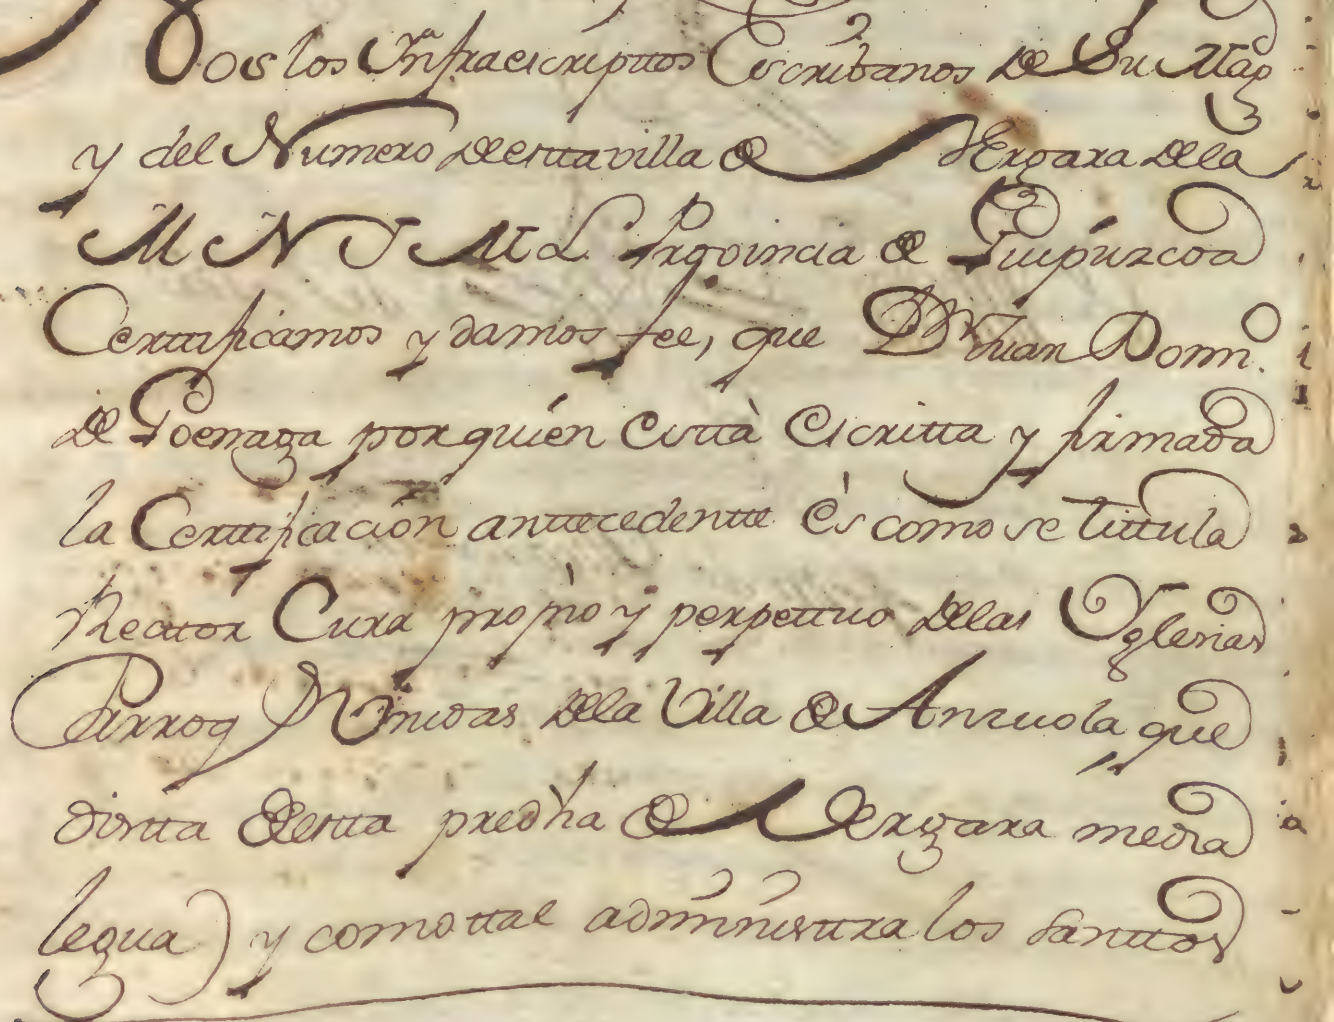 Nos los Infraescripttos Escribanos de Su Mag
y del Numero de esttavilla de Vergara dela
M N Y M L Provincia de Guipúzcoa
Certtificamos y damos fee, que Dn Juan Domo.
de Goenaga por quién esttà Escritta y firmada
la Certtificación anttecedentte és como se tittula
Recttor Cura proprio y perpettuo delas Yglesias
Parroqs Unidas dela Villa de Anzuola que
distta de estta predha de Vergara media
legua) y como ttal administtra los Santtos